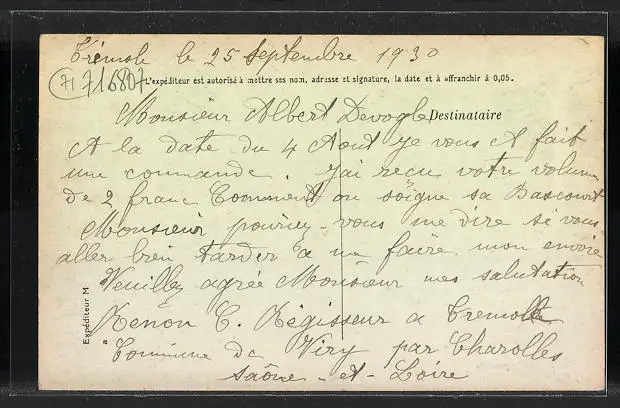 Trémole le 25 Septembre 1930
71 716807
L'expéditeur est autorisé à mettre ses nom, adresse et signature, la date et à affranchir à 0,05.
Monsieur Albert Devogle Destinataire
A la date du 4 Aout je vous et fait
une commande. j'ai reçu votre volume
de 2 franc Comment on soigne sa Bascourt
Monsieur pouriez-vous me dire si vous
aller bien tarder a me faire mon envoie
Veuillez agrée Monsieur mes salutation
Renon C. Régisseur a Tremolle
Commune de Viry par Charolles
Saône-et-Loire
Expéditeur M